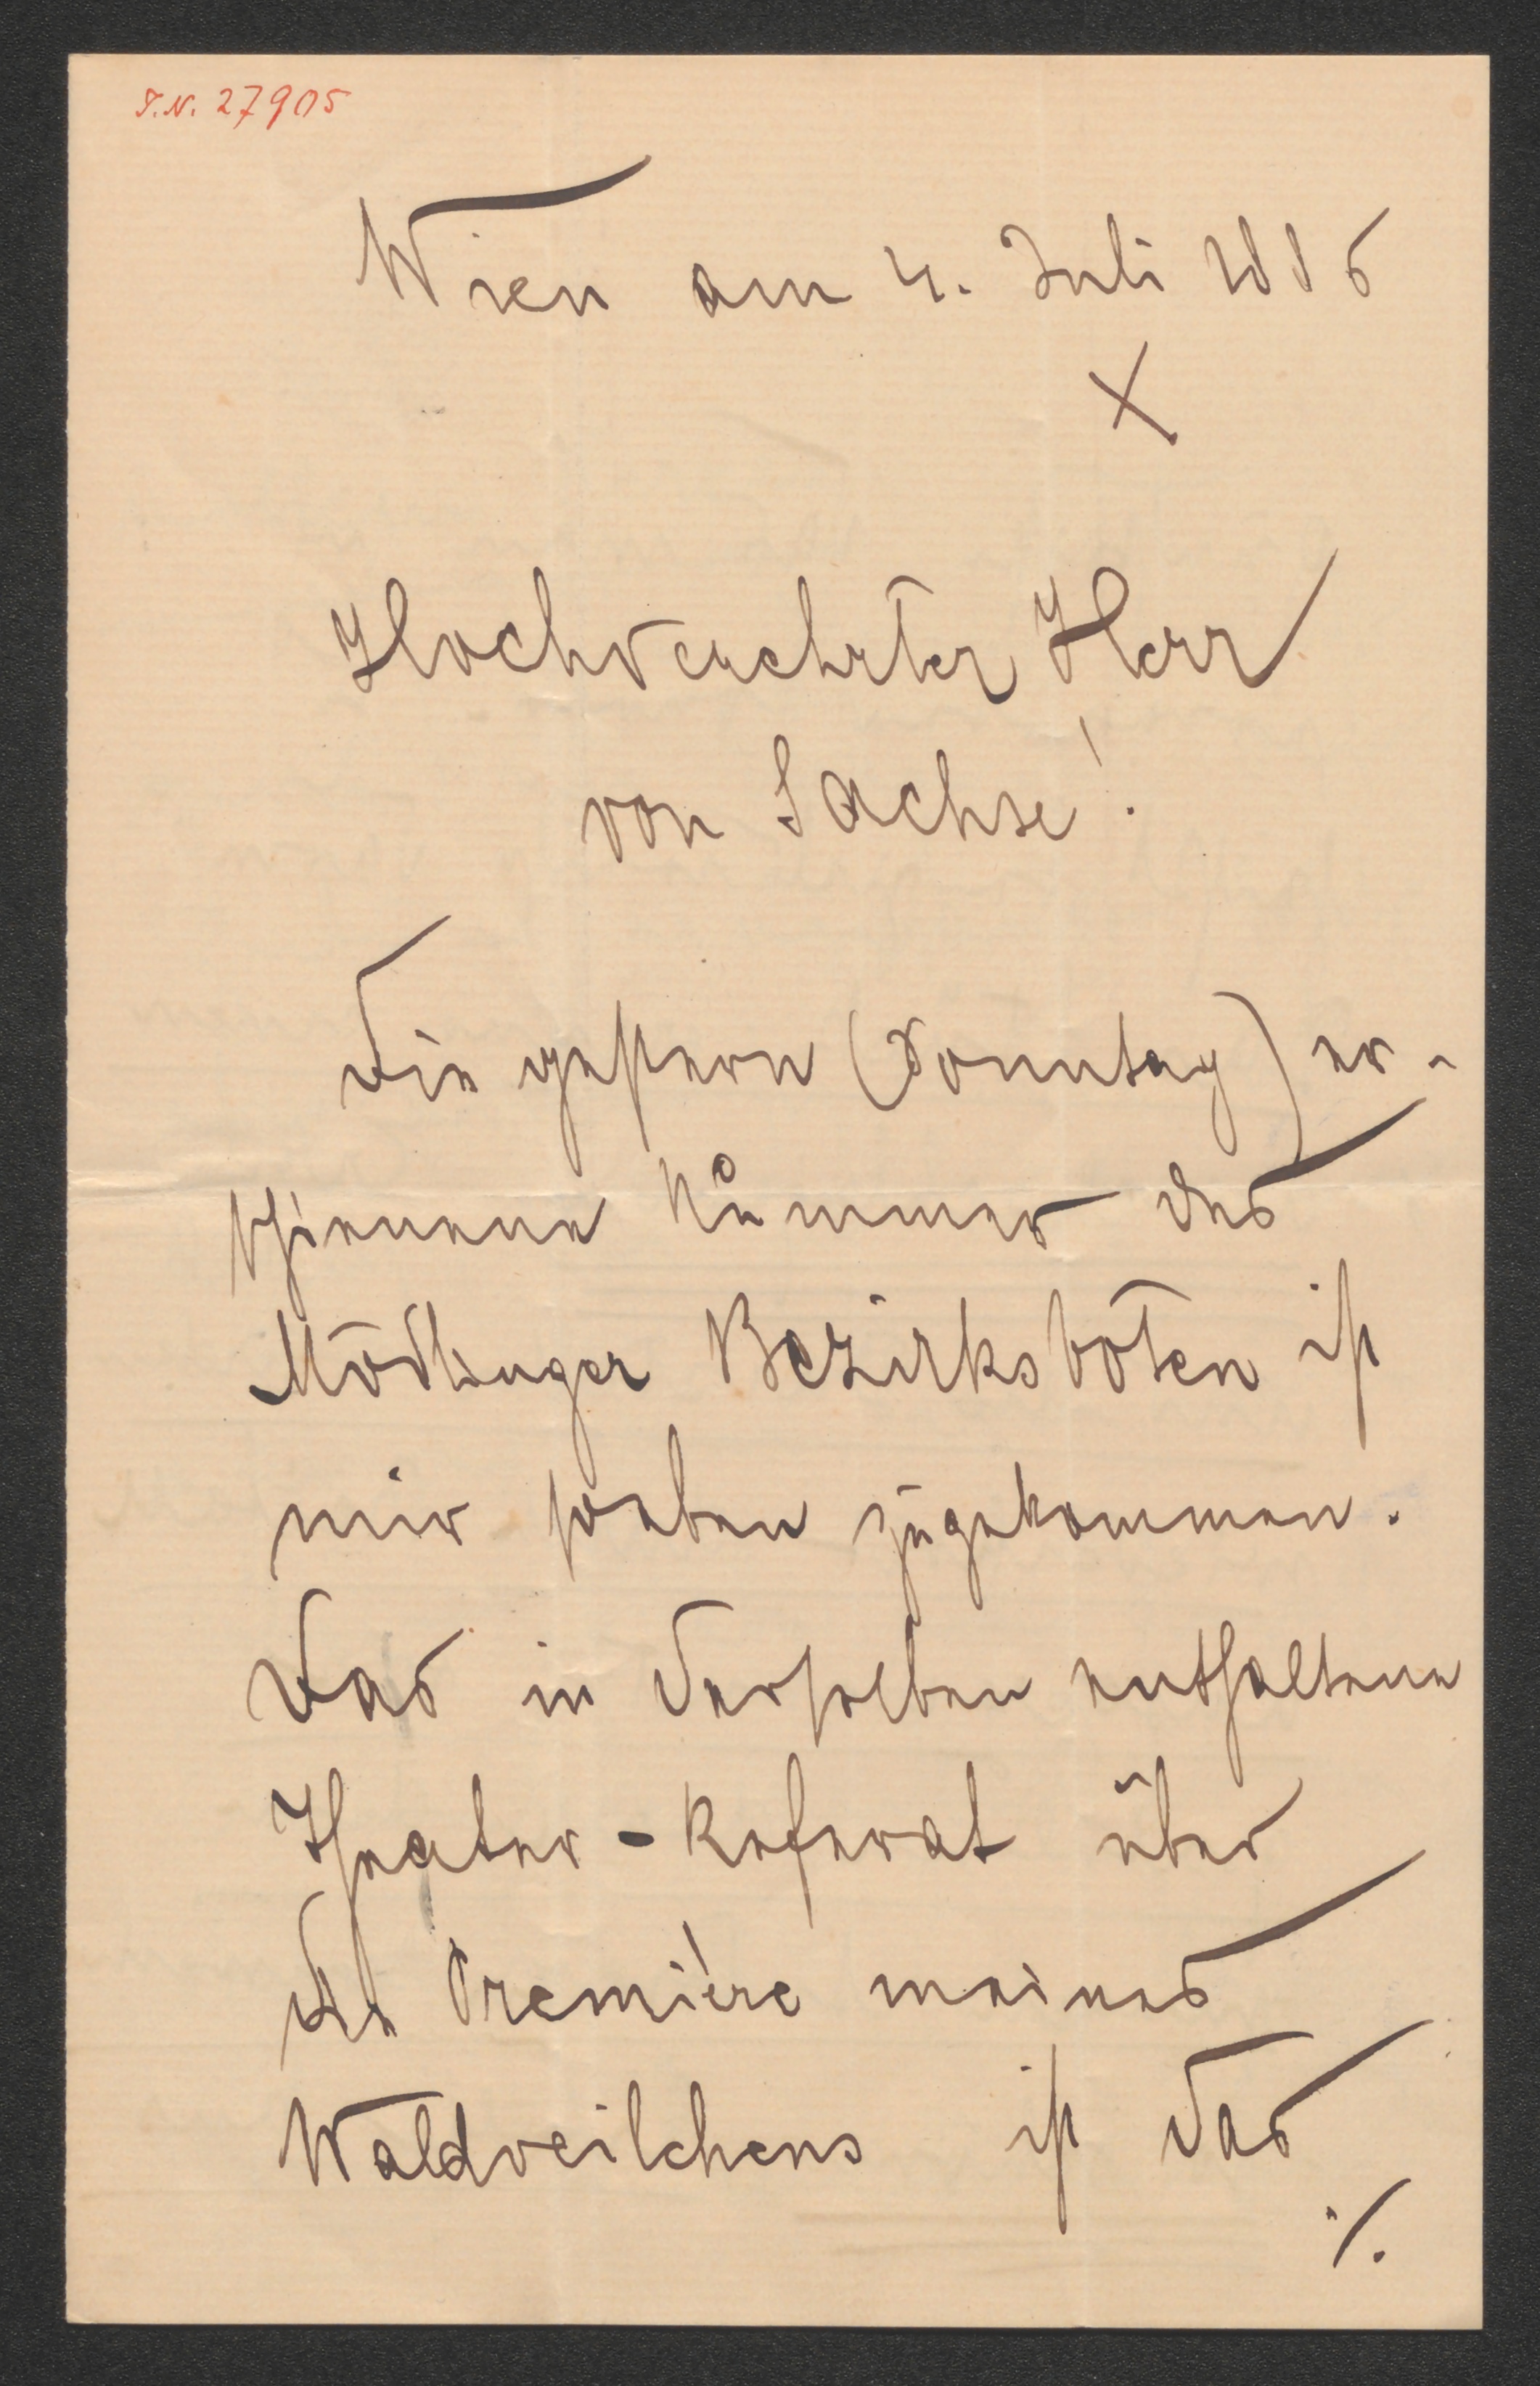 I.N. 27905
Wien am 4. Juli 1886
Hochverehrter Herr
von Sachse!
Die gestern (Sonntag) er-
schienene Nummer des
Mödlinger Bezirksboten ist
mir soeben zugekommen.
Das in derselben enthaltene
Theater-Referat über
die Première meines
Waldveilchens ist das
./.